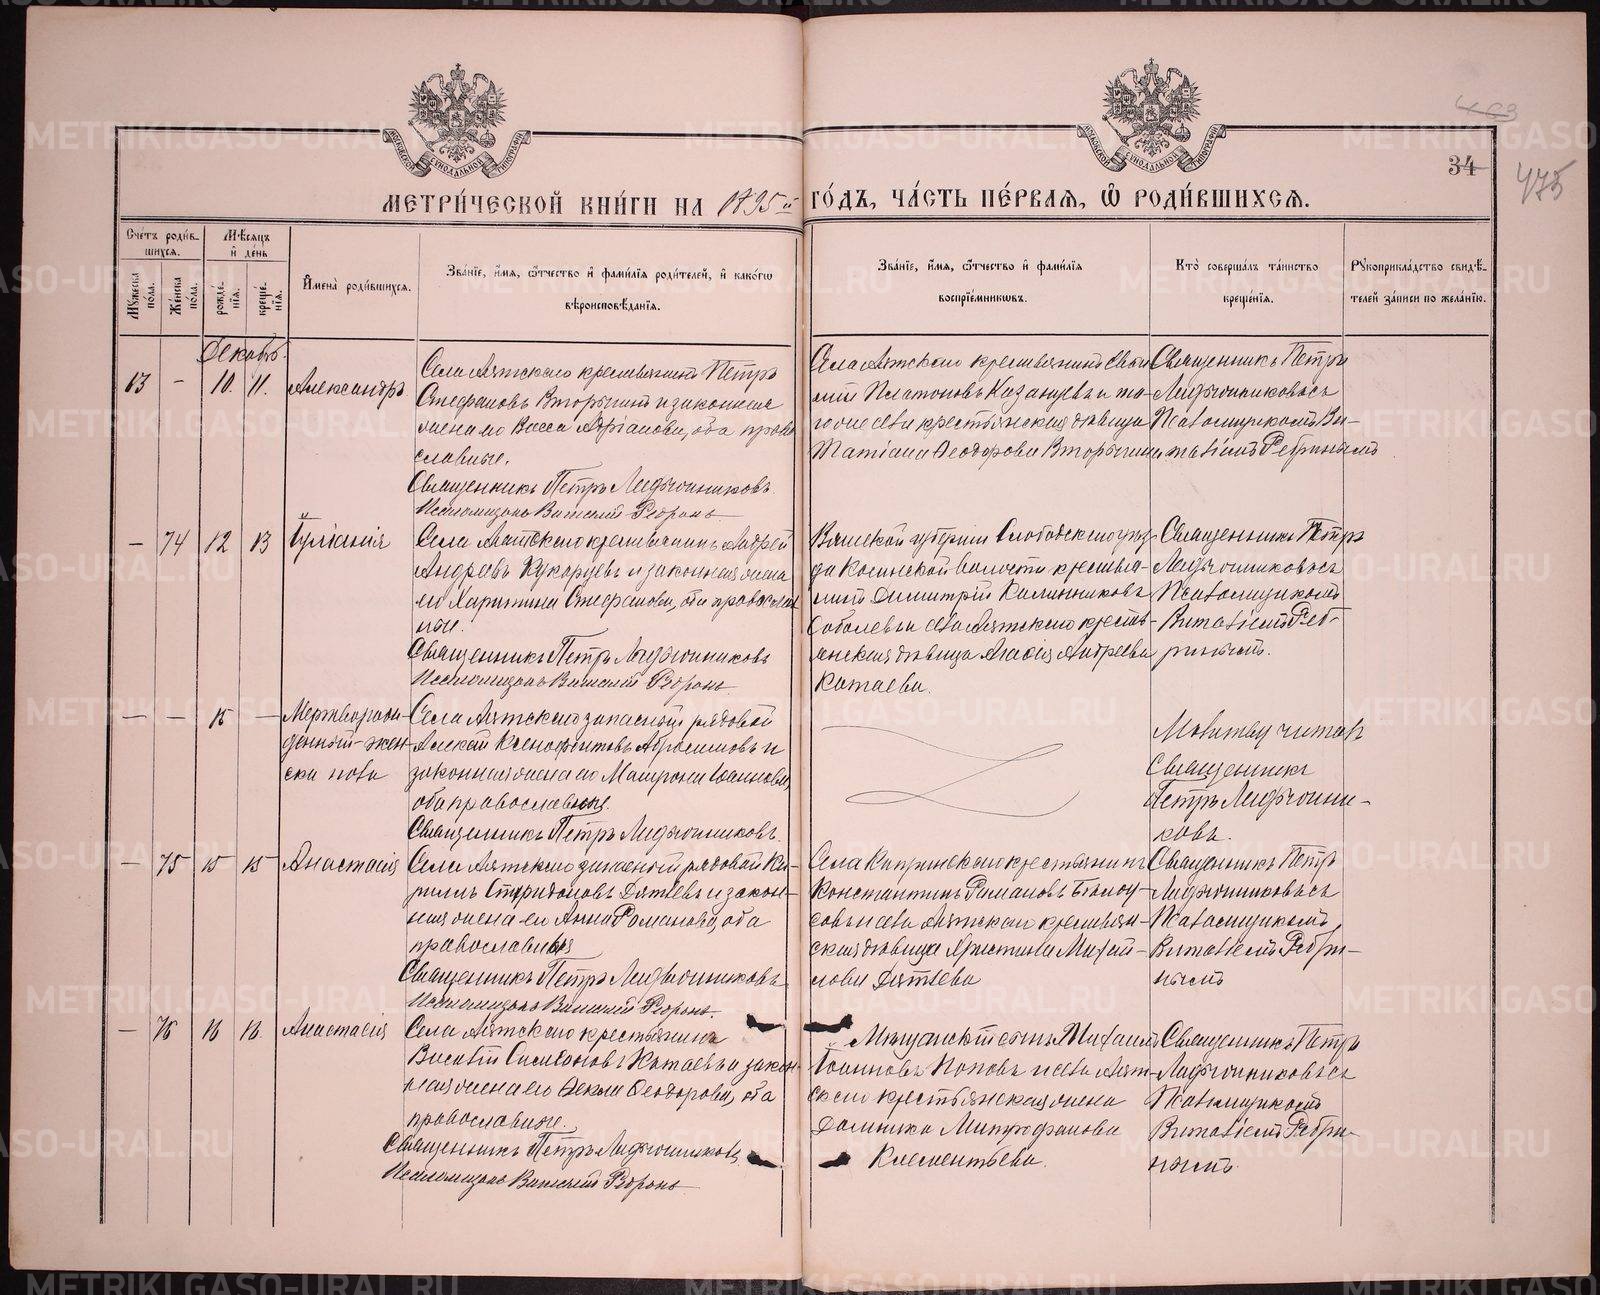 403
34
475
МЕТРИ́ЧЕСКОЙ КНИ́ГИ НА 1895й ГО́ДЪ, ЧА́СТЬ ПЕ́РВАЯ, Ѽ РОДИ́ВШИХСЯ.
Сче́тъ роди́вшихся.
Мꙋ́жеска по́ла.
Же́нска по́ла.
Мѣ́сяцъ и҆ де́нь
рожде́нїѧ.
креще́нїѧ.
И҆мена̀ роди́вшихсѧ.
Зва́нїе, и҆́мѧ, ѻ҆́тчество и҆ фами́лїѧ роди́телей, и҆ како́гѡ
вѣроисповѣ́данїѧ.
Зва́нїе, и҆́мѧ, ѻ҆́тчество и҆ фами́лїѧ
воспрїе́мниковъ.
Кто̀ соверша́лъ та́инство
креще́нїѧ.
Рꙋкоприкла́дство свидѣ́-
телей за́писи по жела́нїю.
Декабрь.
— 10. 11. Александръ
Села Аятскаго крестьянинъ Петръ
Стефановъ Вторыгинъ и законная
жена его Васса, оба право
славные.
Священникъ Петръ
Псаломщикъ
Села Аятскаго крестьянинъ
Платоновъ Казанцевъ и то-
гоже села крестьянская дѣвица
Татіана Ѳеодорова Вторыгина
Священникъ Петръ
съ
Псаломщикомъ Ви-
таліемъ
— 74 12 13 Іуліанія
Села Аятскаго крестьянинъ Андрей
Андреевъ Кукарцевъ и законная жена
его Харитина Стефанова, оба православ
ные.
Священникъ Петръ
Псаломщикъ
Вятской губерніи Слободскаго уѣз
да Косинской волости крестья-
нинъ Димитрій Калинниковъ
Соболевъ и села Аятскаго кресть-
янская дѣвица Андреева
Катаева.
Священникъ Петръ
съ
Псаломщикомъ
Виталіемъ
— — 15 — Мертворож
денный жен-
ска пола
Села Аятскаго запасной рядовой
Алексій Ксенофонтовъ Абросимовъ и
законная жена его Матрона Іоаннова,
оба православные.
Священникъ Петръ
Молитву читалъ
Священникъ
Петръ
— 75 15 15 Анастасія
Села Аятскаго рядовой Ки-
риллъ Спиридоновъ Дятлевъ и закон-
ная жена его Анна Романова, оба
православные
Священникъ Петръ
Псаломщикъ
Села крестьянинъ
Константинъ Романовъ Бѣлоу-
совъ и села Аятскаго крестьян-
ская дѣвица Христина Михай-
лова Дятлева
Священникъ Петръ
съ
Псаломщикомъ
Виталіемъ
— 76 16 16. Анастасія
Села Аятскаго крестьянинъ
Василій Симеоновъ Катаевъ и закон
ная жена его Ѳекла Ѳеодорова, оба
православные.
Священникъ Петръ
Псаломщикъ
Мѣщанскій сынъ Михаилъ
Іоанновъ Поповъ и села Аят-
скаго крестьянская жена
Домника Митрофанова
Клементьева.
Священникъ Петръ
съ
Псаломщикомъ
Виталіемъ